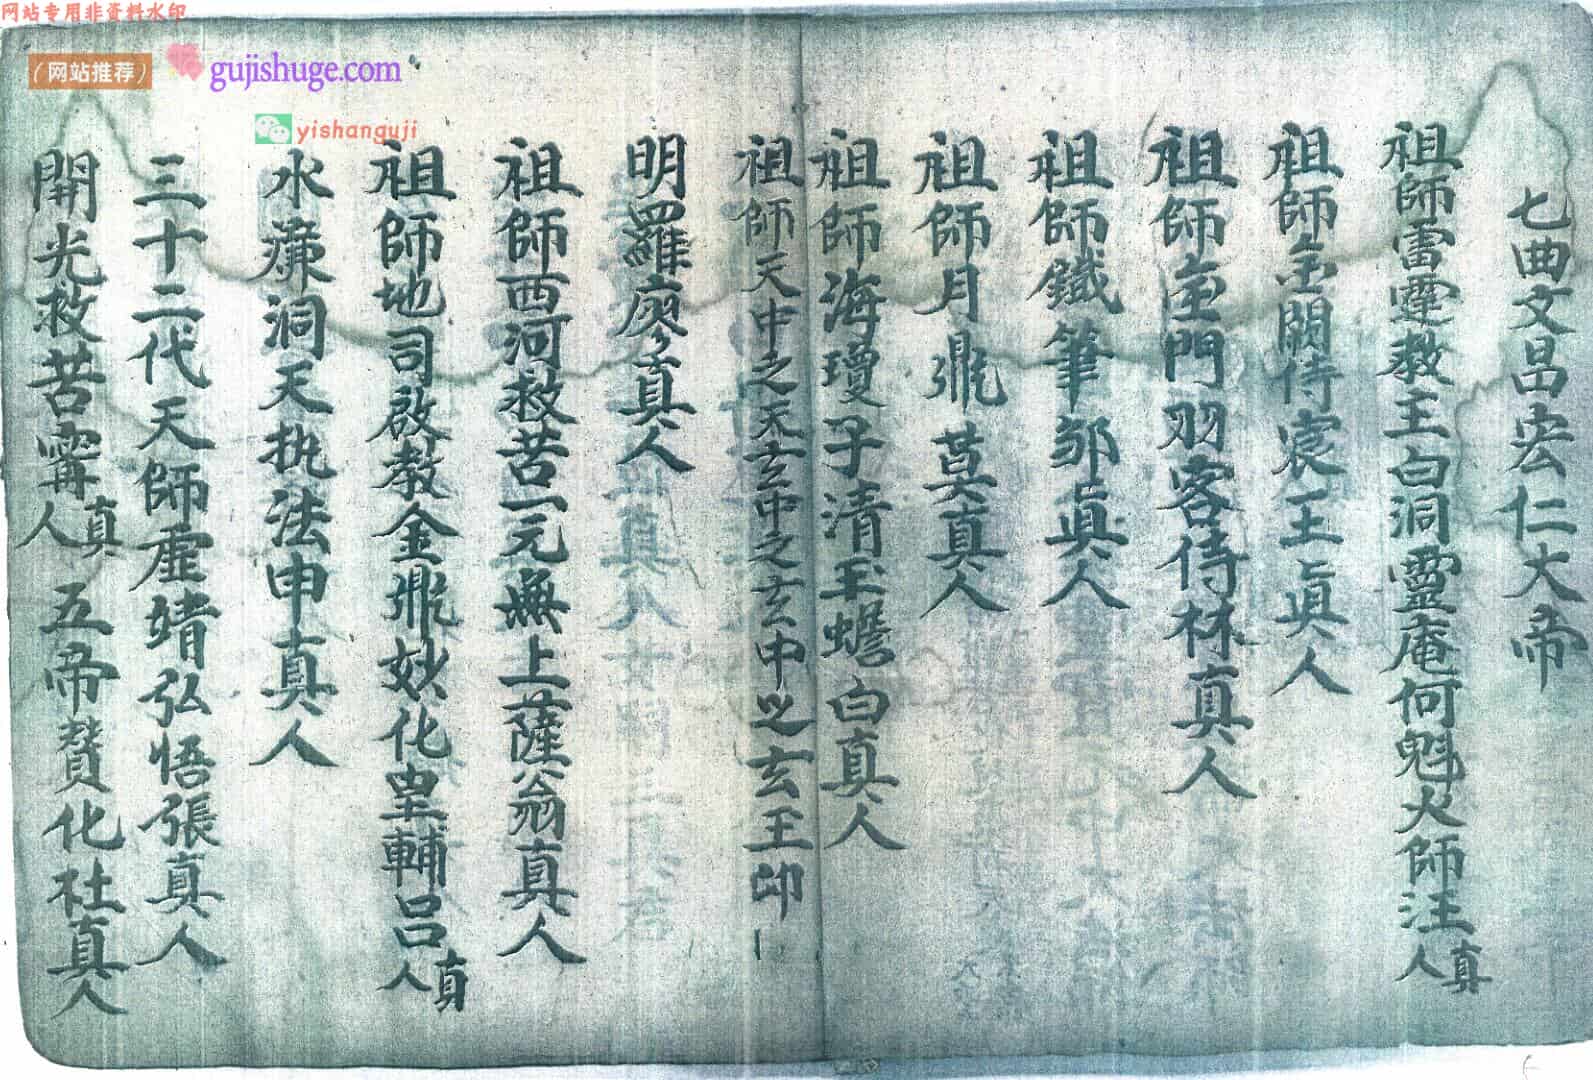 网站专用非资料水印
（网站推荐）
gujishuge.com
yishanguji
七曲文昌宏仁大帝
祖師雷霆教主白洞靈庵何魁火師汪真人
祖師金闕侍宸王真人
祖師金門羽客侍林真人
祖師鐵筆鄒真人
祖師月鼎莫真人
祖師海瓊子清玉蟾白真人
祖師天中之天玄中之玄中之玄王卬
明羅廖真人
祖師西河救苦一元無上薩翁真人
祖師地司啟教金鼎妙化皇輔吕真人
水㢘洞天执法申真人
三十二代天師虛靖弘悟張真人
開光救苦甯真人五帝贊化杜真人